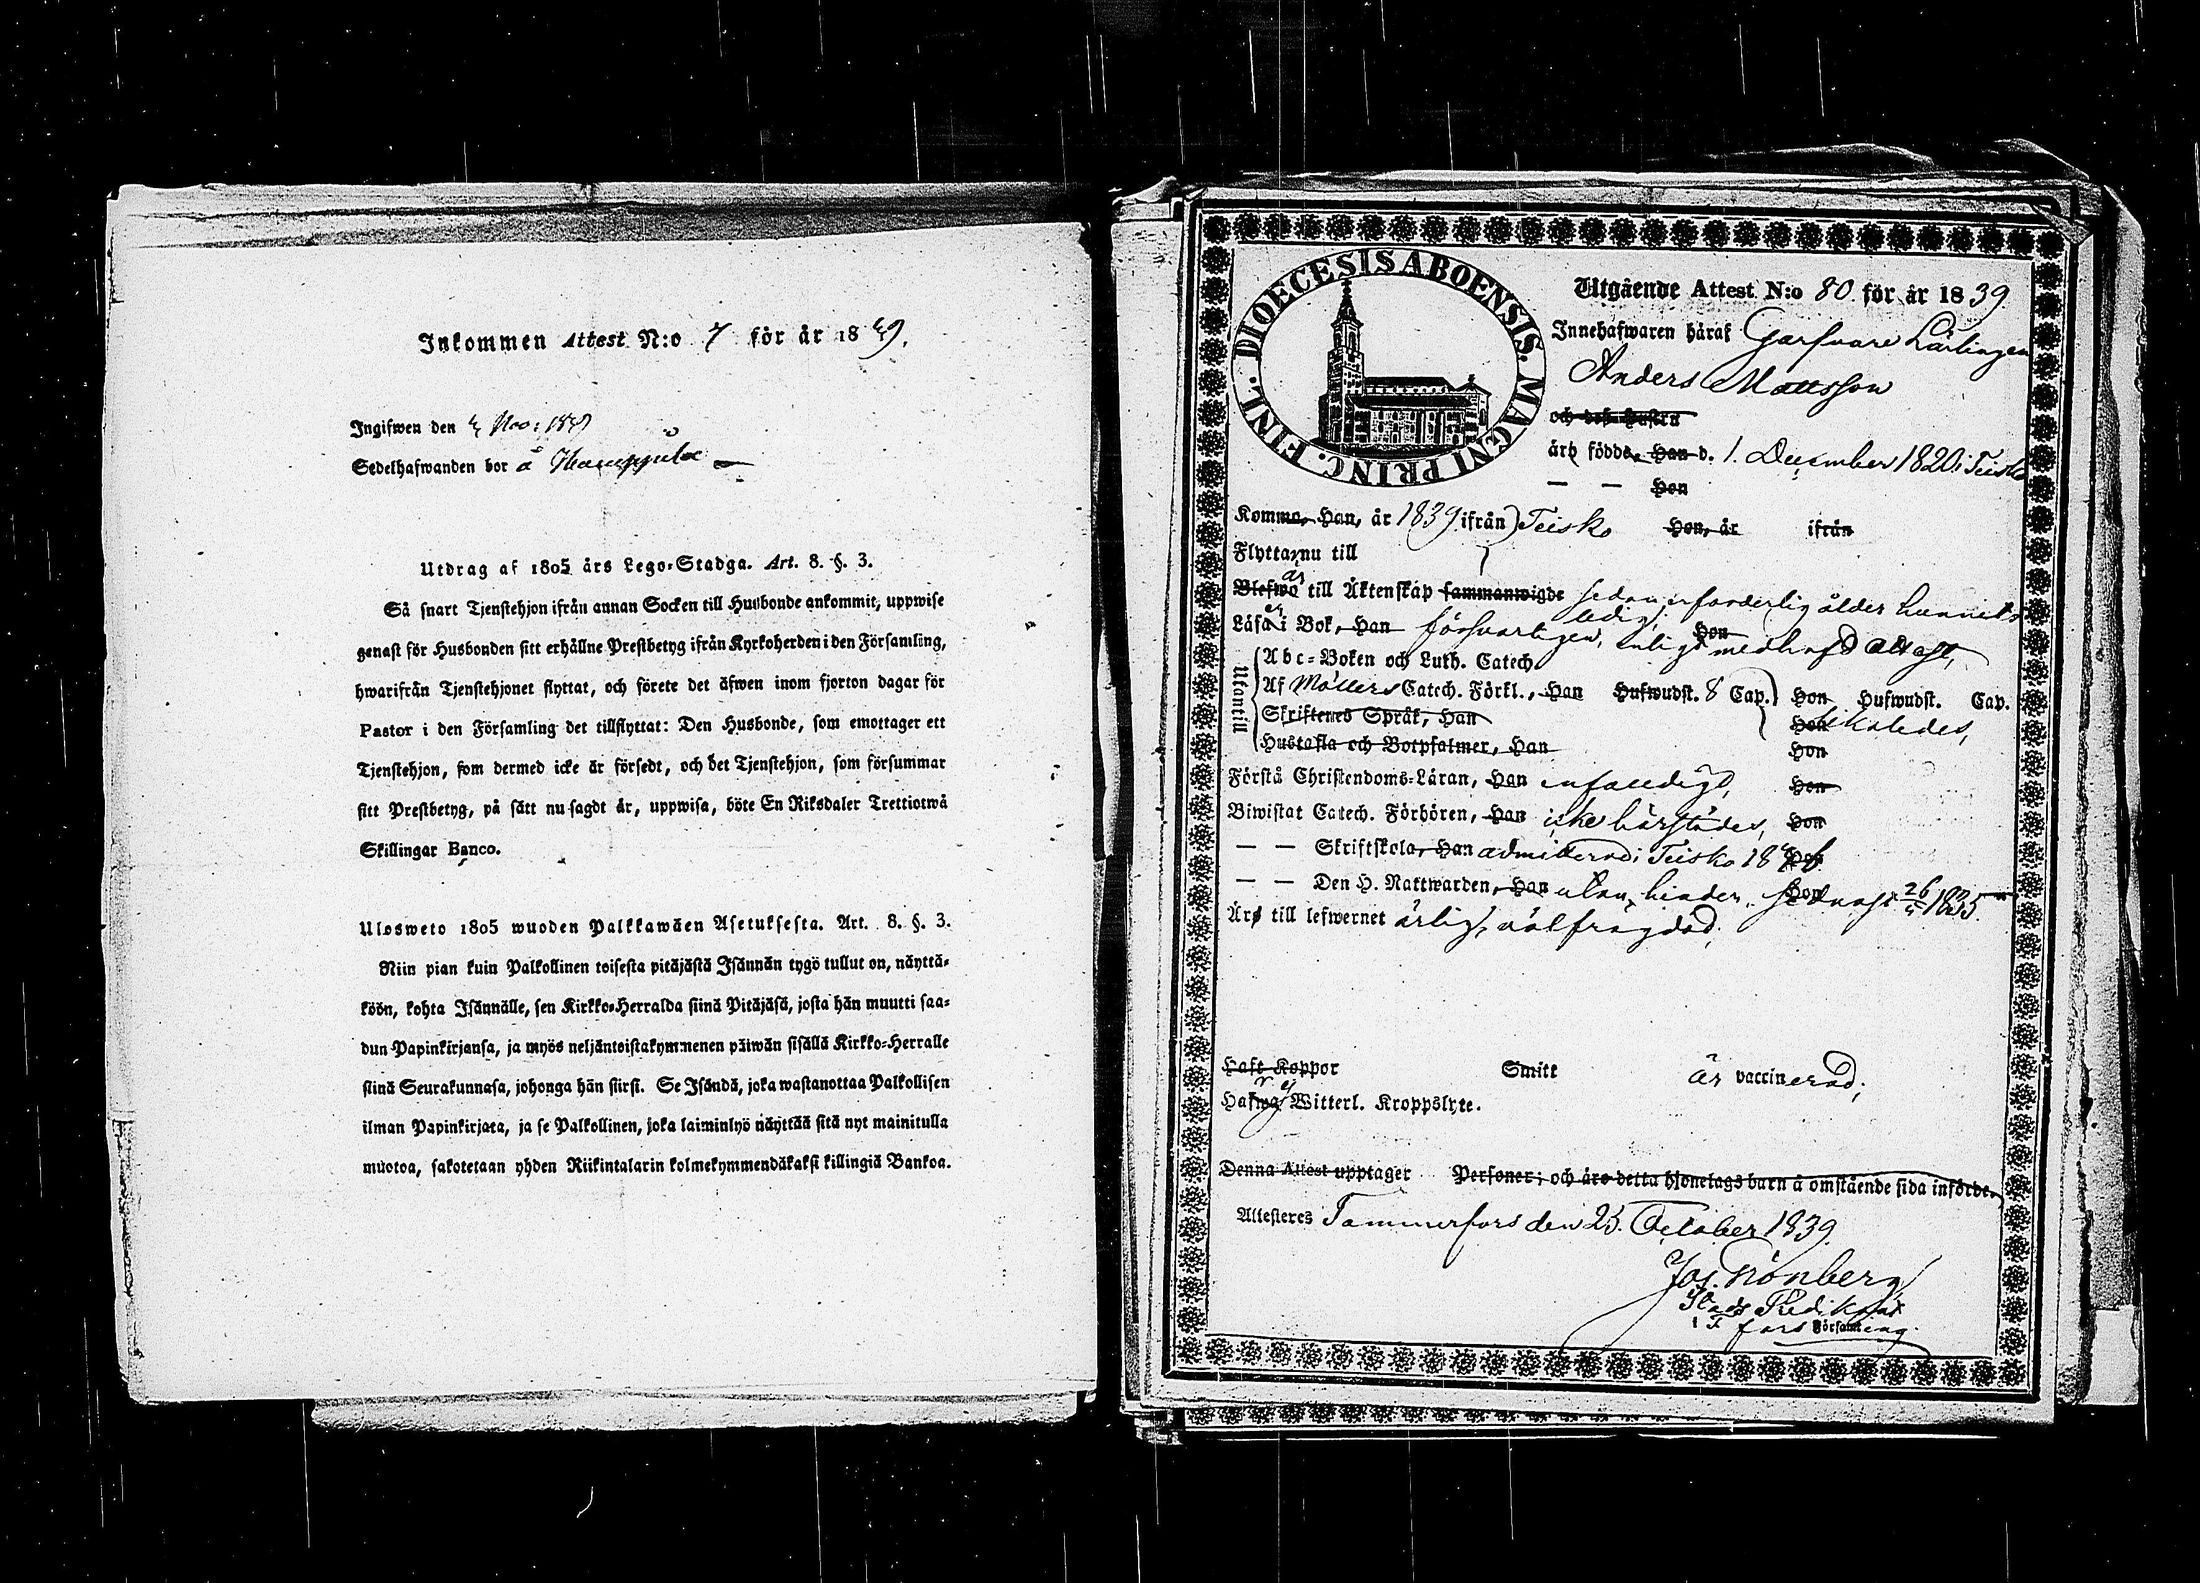 Inkommen Attest N:o 7 för år 1839.
Ingifwen den Nov: 18
Sedelhafwanden bor å
Utdrag af 1805 års Lego-Stadga. Art. 8. §. 3.
Så snart Tjenstehjon ifrån annan Socken till Husbonde ankommit, uppwise
genast för Husbonden sitt erhållne Prestbetyg ifrån Kyrkoherden i den Församling,
hwarifrån Tjenstehjonet flyttat, och förete det äfwen inom fjorton dagar för
Pastor i den Församling det tillflyttat: Den Husbonde, som emottager ett
Tjenstehjon, som dermed icke är försedt, och det Tjenstehjon, som försummar
sitt Prestbetyg, på sätt nu sagdt är, uppwisa, böte En Riksdaler Trettiotwå
Skillingar Banco.
Ulosweto 1805 wuoden Palkkawäen Asetuksesta. Art. 8. §. 3.
Niin pian kuin Palkollinen toisesta pitäjästä Isännän tygö tullut on, näyttä-
köön, kohta Isännälle, sen Kirkko-Herralda siinä Pitäjäsä, josta hän muutti saa-
dun Papinkirjansa, ja myös neljäntoistakymmenen päiwän sisällä Kirkko-Herralle
siinä Seurakunnasa, johonga hän siirsi. Se Isändä, joka wastanottaa Palkollisen
ilman Papinkirjata, ja se Palkollinen, joka laiminlyö näyttää sitä nyt mainitulla
muotoa, sakotetaan yhden Riikintalarin kolmekymmendäkaksi killingiä Bankoa.
DIOECESIS ABOENSIS. MAGNI PRINC. FINL.
Utgående Attest N:o 80. för år 1839.
Innehafwaren häraf Garfvare Lärlingen
Anders Mattsson
och des hustru
äro födde, Han d. 1. December 1820 i Teisko
— — Hon
Komma, Han, år 1839 ifrån Teisko Hon, år ifrån
Flytta nu till
Blefwo är till Äktenskap sammanwigde ledig, sedan erforderlig ålder hunnits
Läsa i Bok, Han försvarligen, enligt medhafd attest, Hon
Utantill
Abc-Boken och Luth. Catech.
Af Möllers Catech. Förkl., Han Hufwudst. 8 Cap. Hon Hufwudst. Cap.
Skriftenes Språk, Han Hon likaledes,
Hustafla och Botpsalmer, Han Hon
Förstå Christendoms-Läran, Han enfaldigt, Hon
Biwistat Catech. Förhören, Han icke härstädes, Hon
— — Skriftskola, Han admitterad i Teisko 18 Hon
— — Den H. Nattwarden, Han utan hinder, Hon
Äro till lefwernet ärlig, välfrägdad;
Haft Koppor Smitt är vaccinerad;
Hafwa ej Witterl. Kroppslyte.
Denna Attest upptager Personer; och äro detta hjonelags barn å omstående sida införde.
Attesteres Tammerfors den 25. October 1839.
Jos. Grönberg
Stads Predikant
i T fors Församling.